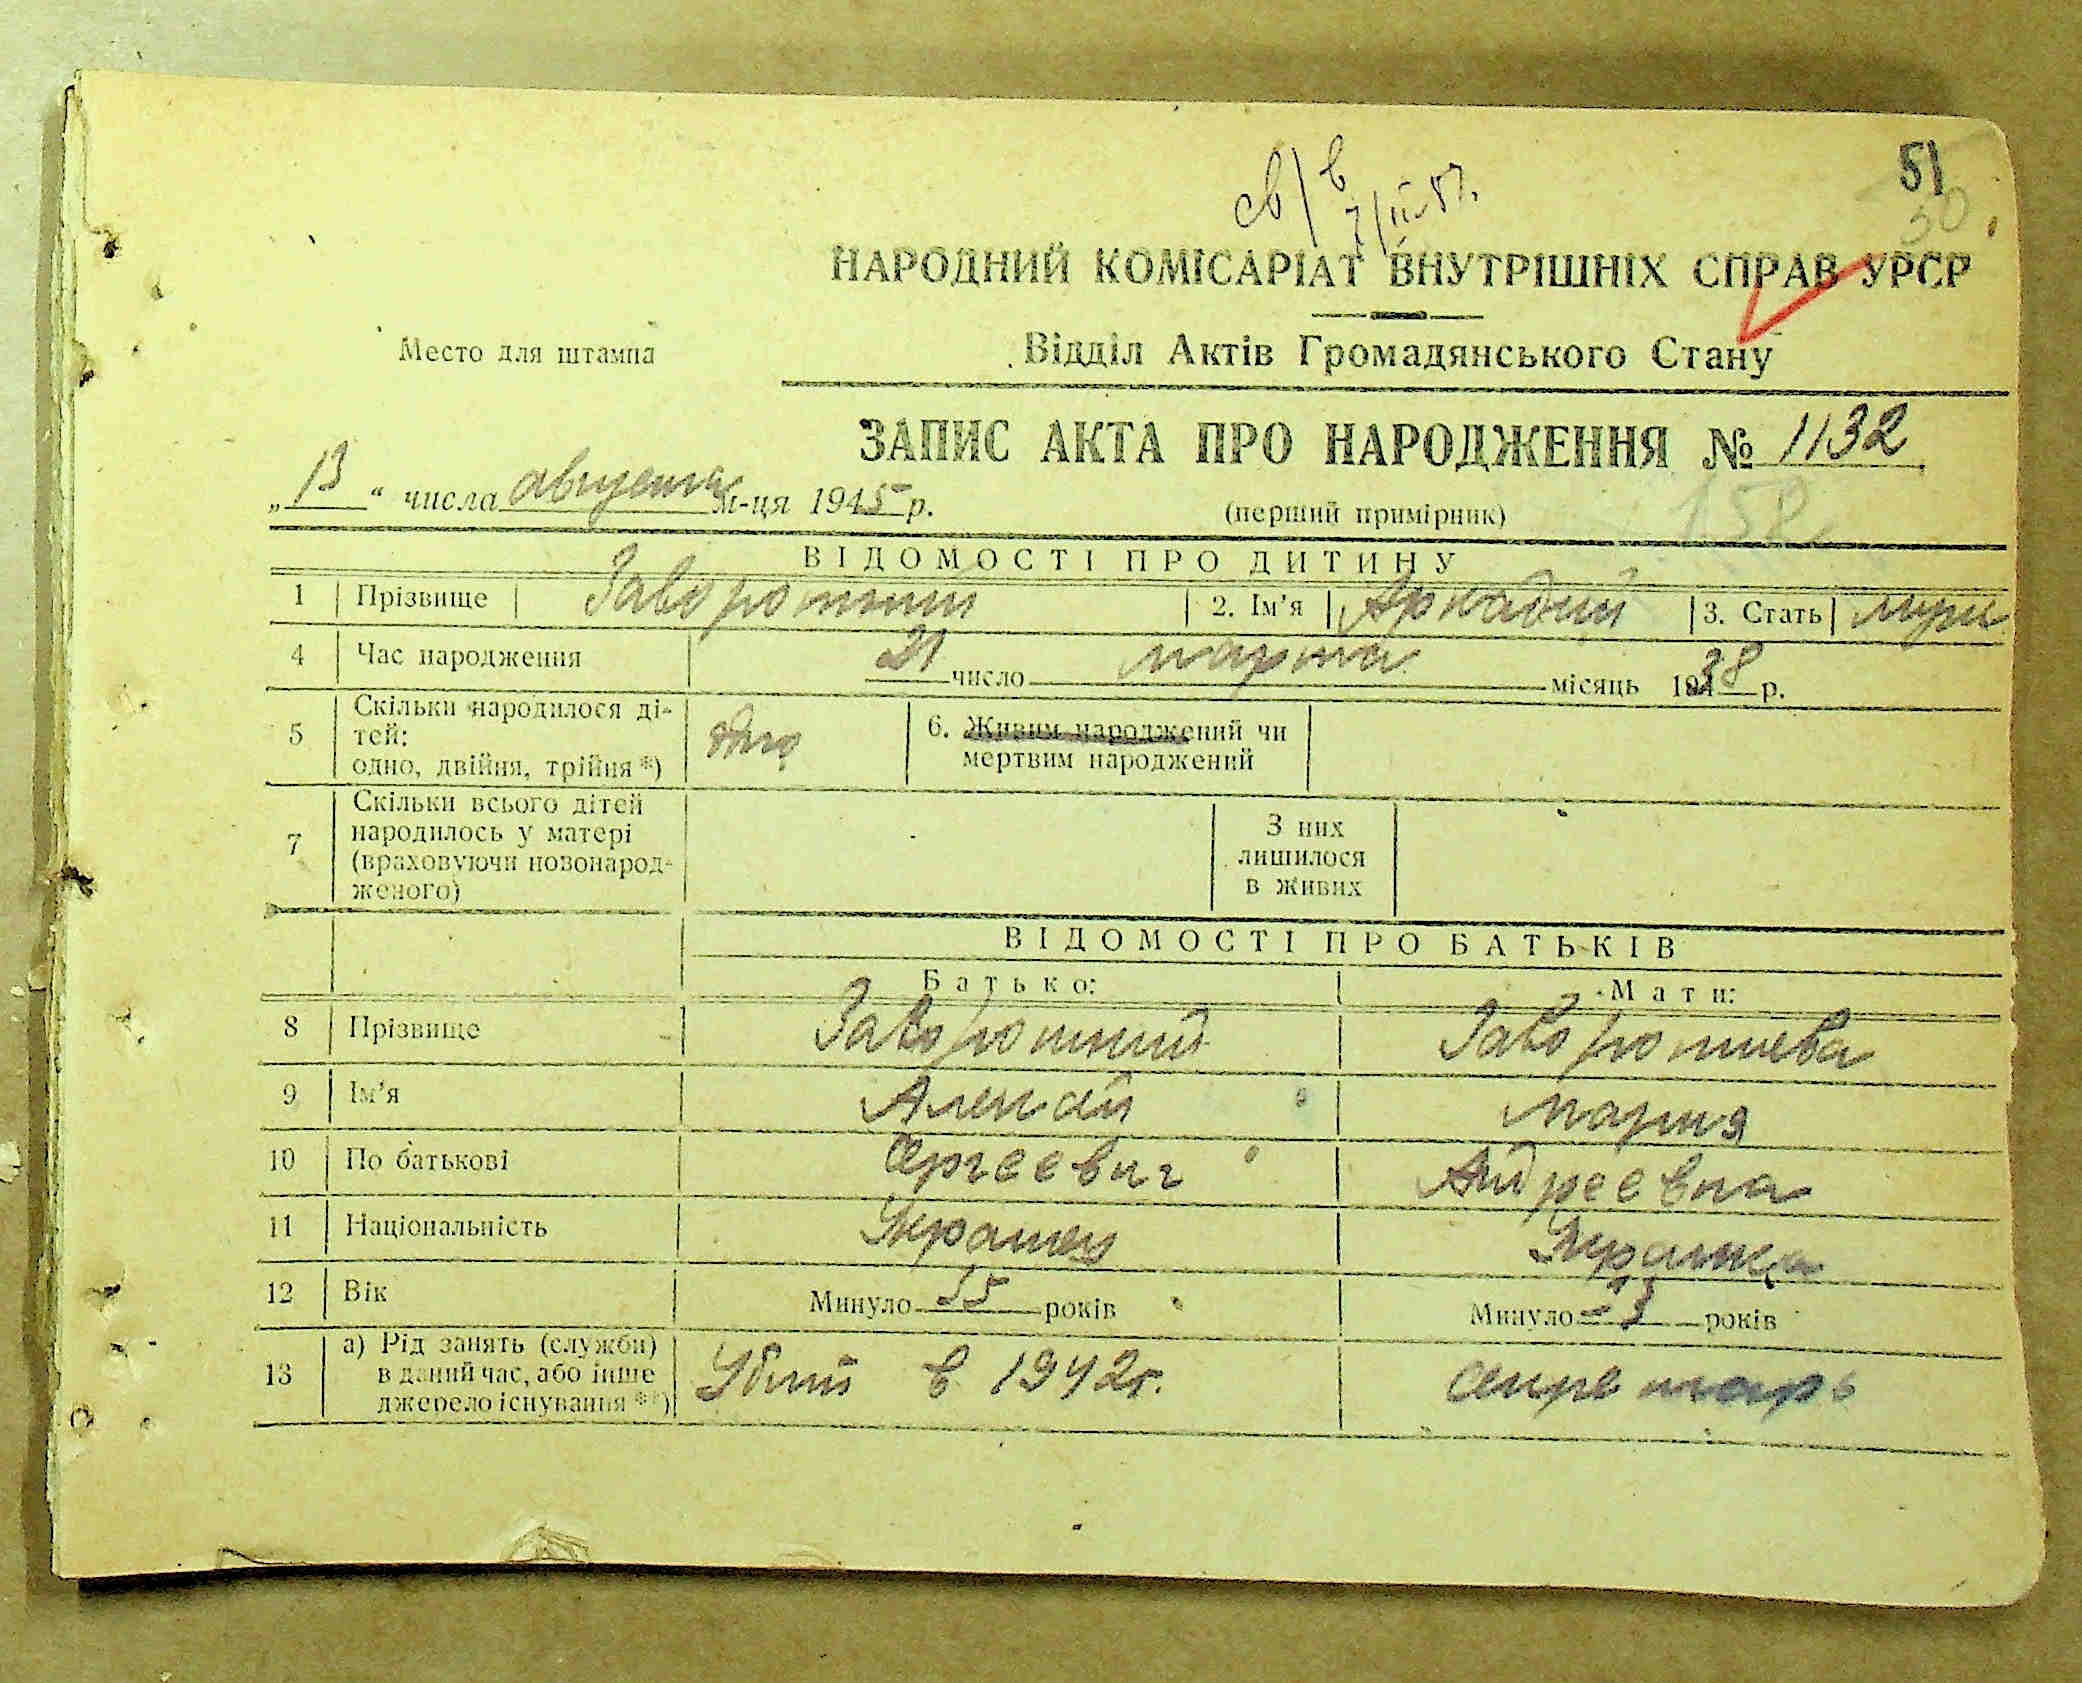 51
50
св/в
7/III-57.
НАРОДНИЙ КОМІСАРІАТ ВНУТРІШНІХ СПРАВ УРСР
Место для штампа
Відділ Актів Громадянського Стану
ЗАПИС АКТА ПРО НАРОДЖЕННЯ № 1132
„13“ числа августа м-ця 1945 р.
(перший примірник)
158
ВІДОМОСТІ ПРО ДИТИНУ
1 Прізвище Заворотний 2. Ім'я Аркадий 3. Стать муж
4 Час народження 21 число марта місяць 1938 р.
5 Скільки народилося ді-
тей:
одно, двійня, трійня *) одно
6. Живим народжений чи
мертвим народжений
7 Скільки всього дітей
народилось у матері
(враховуючи новонарод-
женого)
З них
лишилося
в живих
ВІДОМОСТІ ПРО БАТЬКІВ
Батько: Мати:
8 Прізвище Заворотний Заворотнева
9 Ім'я Алексей Мария
10 По батькові Сергеевич Андреевна
11 Національність Украинец Украинка
12 Вік Минуло років Минуло років
13 а) Рід занять (служби)
в даний час, або інше
джерело існування **)
Убит в 1942г. секретарь